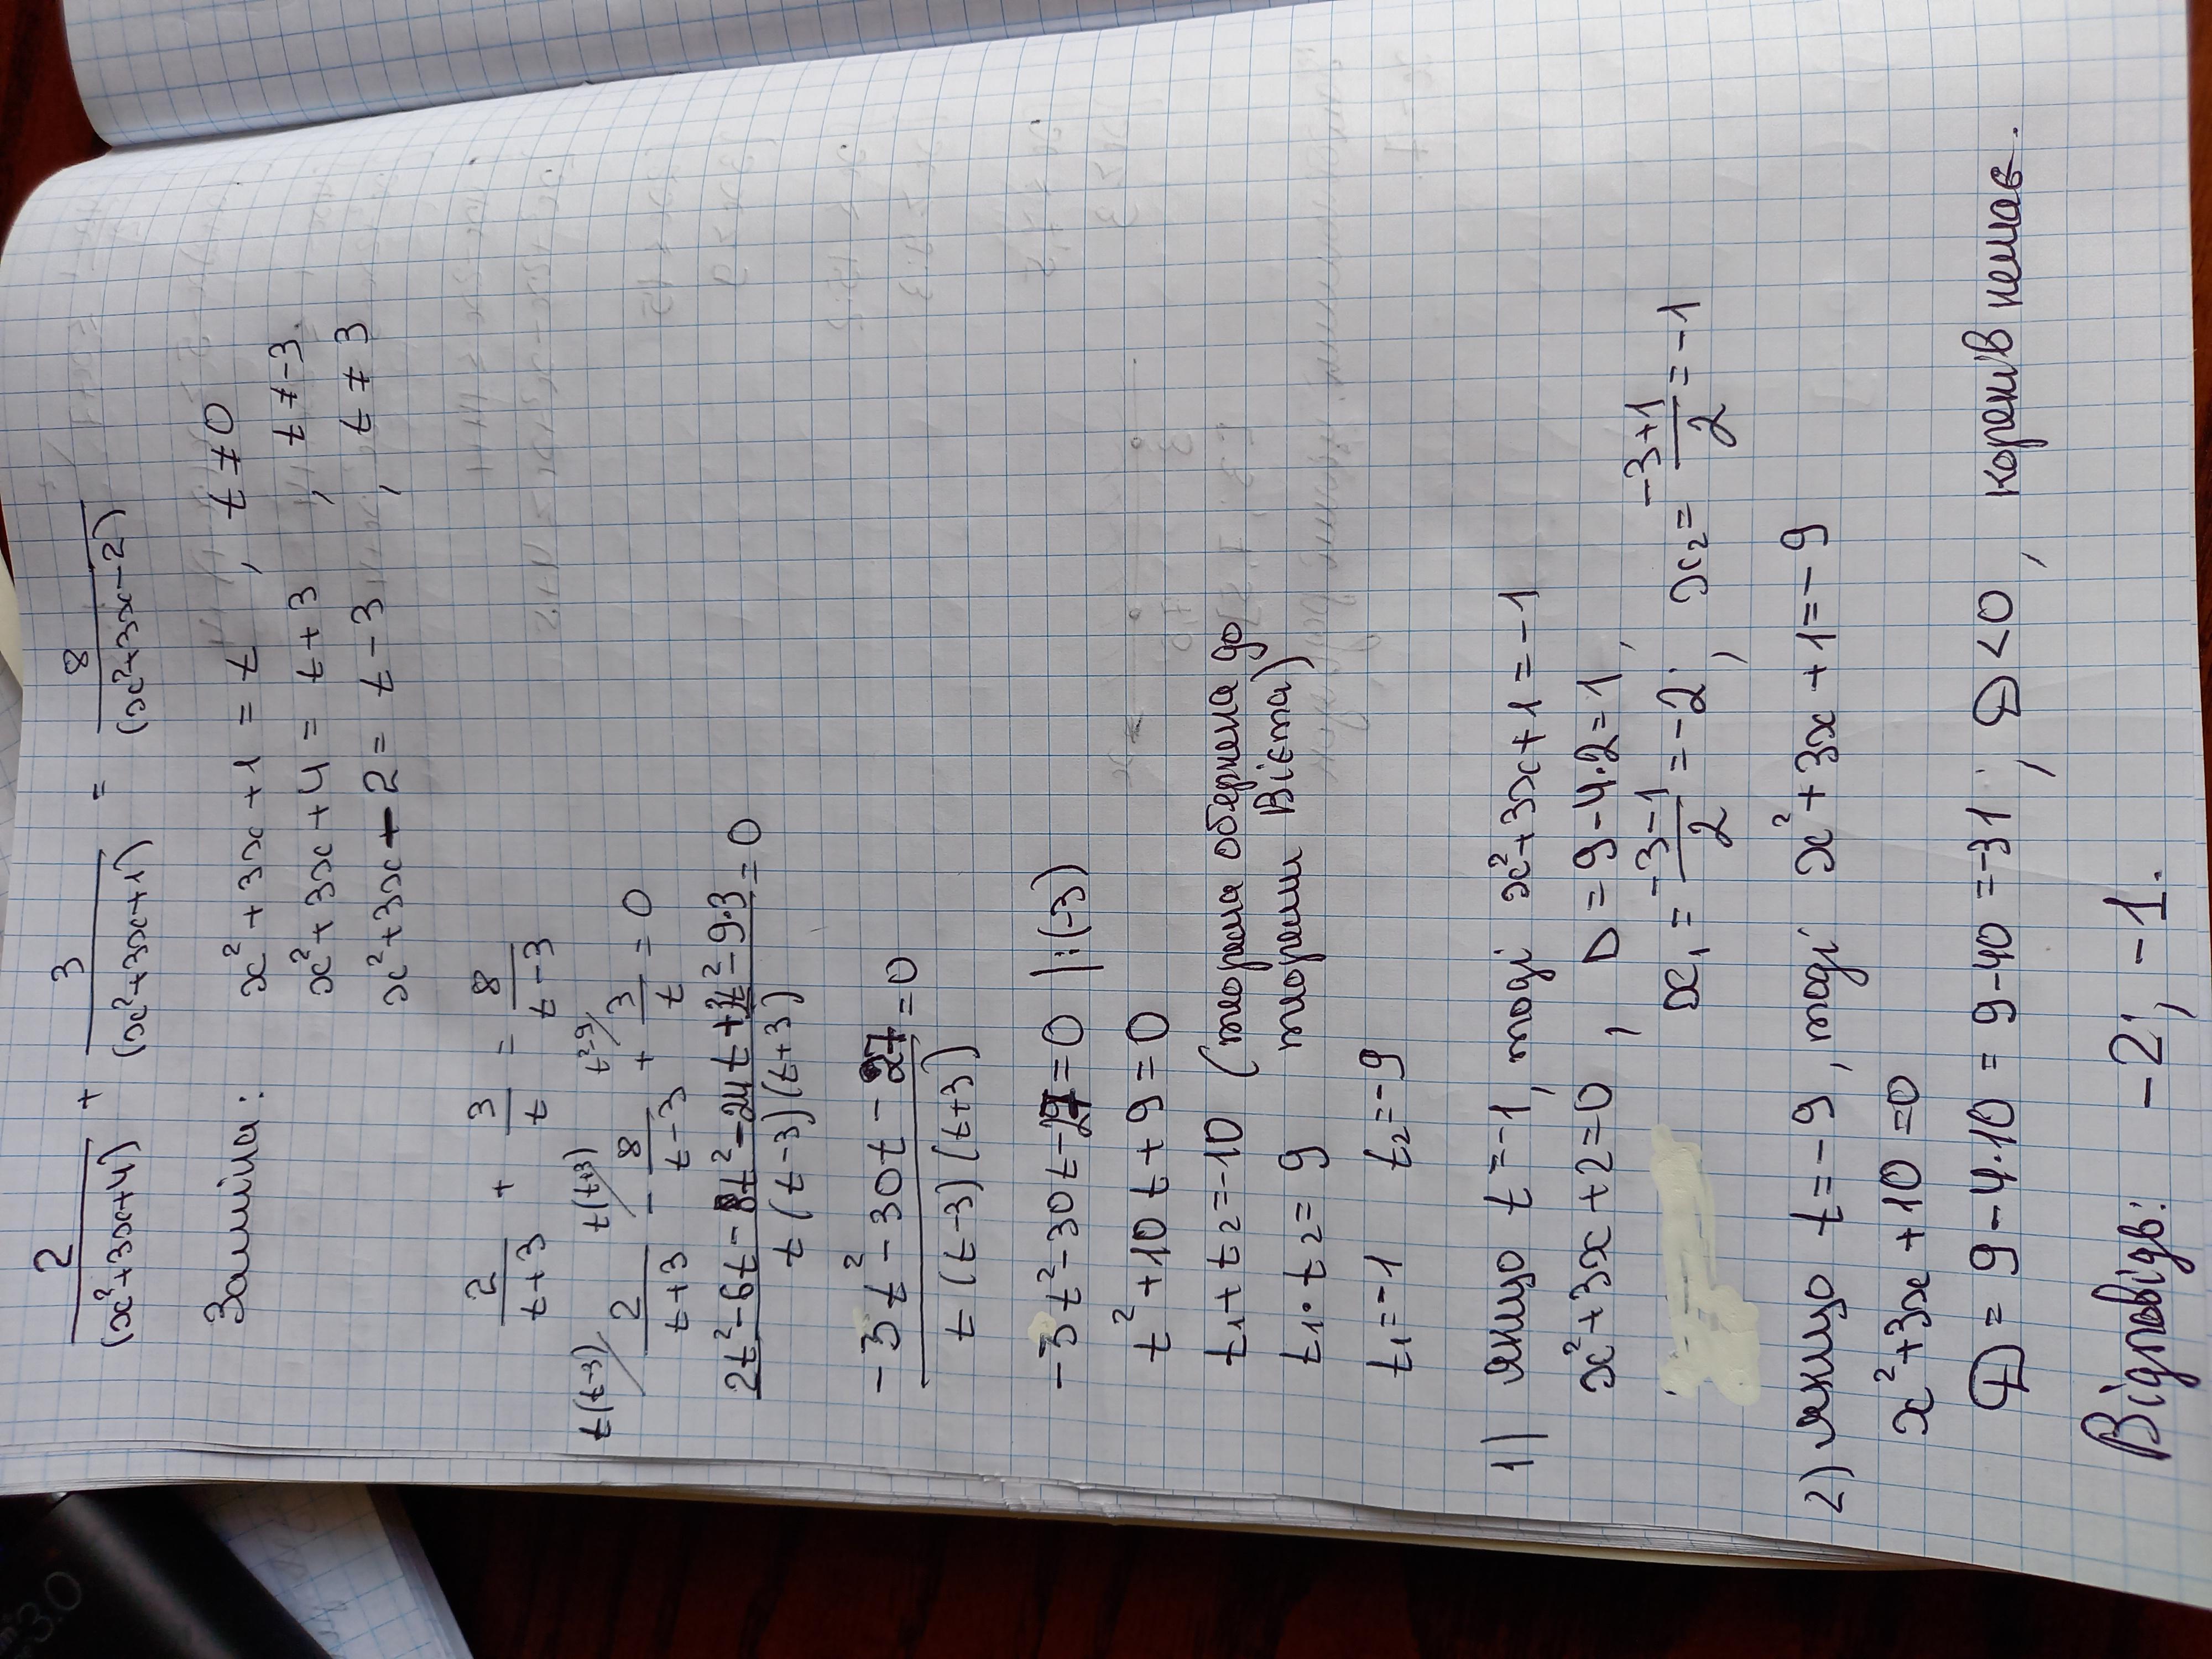 2/(x²+3x+4) + 3/(x²+3x+1) = 8/(x²+3x-2)
Заміна: x²+3x+1 = t, t≠0
x²+3x+4 = t+3, t≠-3
x²+3x-2 = t-3, t≠3
2/(t+3) + 3/t = 8/(t-3)
t(t-3)/ 2/(t+3) - t(t+3)/ 8/(t-3) + t²-9/ 3/t = 0
(2t²-6t-8t²-24t+3t²-9·3)/(t(t-3)(t+3)) = 0
(-3t²-30t-27)/(t(t-3)(t+3)) = 0
-3t²-30t-27=0 |:(-3)
t²+10t+9=0
t₁+t₂=-10 (теорема обернена до
t₁·t₂=9 теореми Вієта)
t₁=-1 t₂=-9
1) якщо t=-1, тоді x²+3x+1=-1
x²+3x+2=0, D=9-4·2=1,
x₁=(-3-1)/2=-2; x₂=(-3+1)/2=-1
2) якщо t=-9, тоді x²+3x+1=-9
x²+3x+10=0
D=9-4·10=9-40=-31; D<0, коренів немає.
Відповідь: -2; -1.
3.0